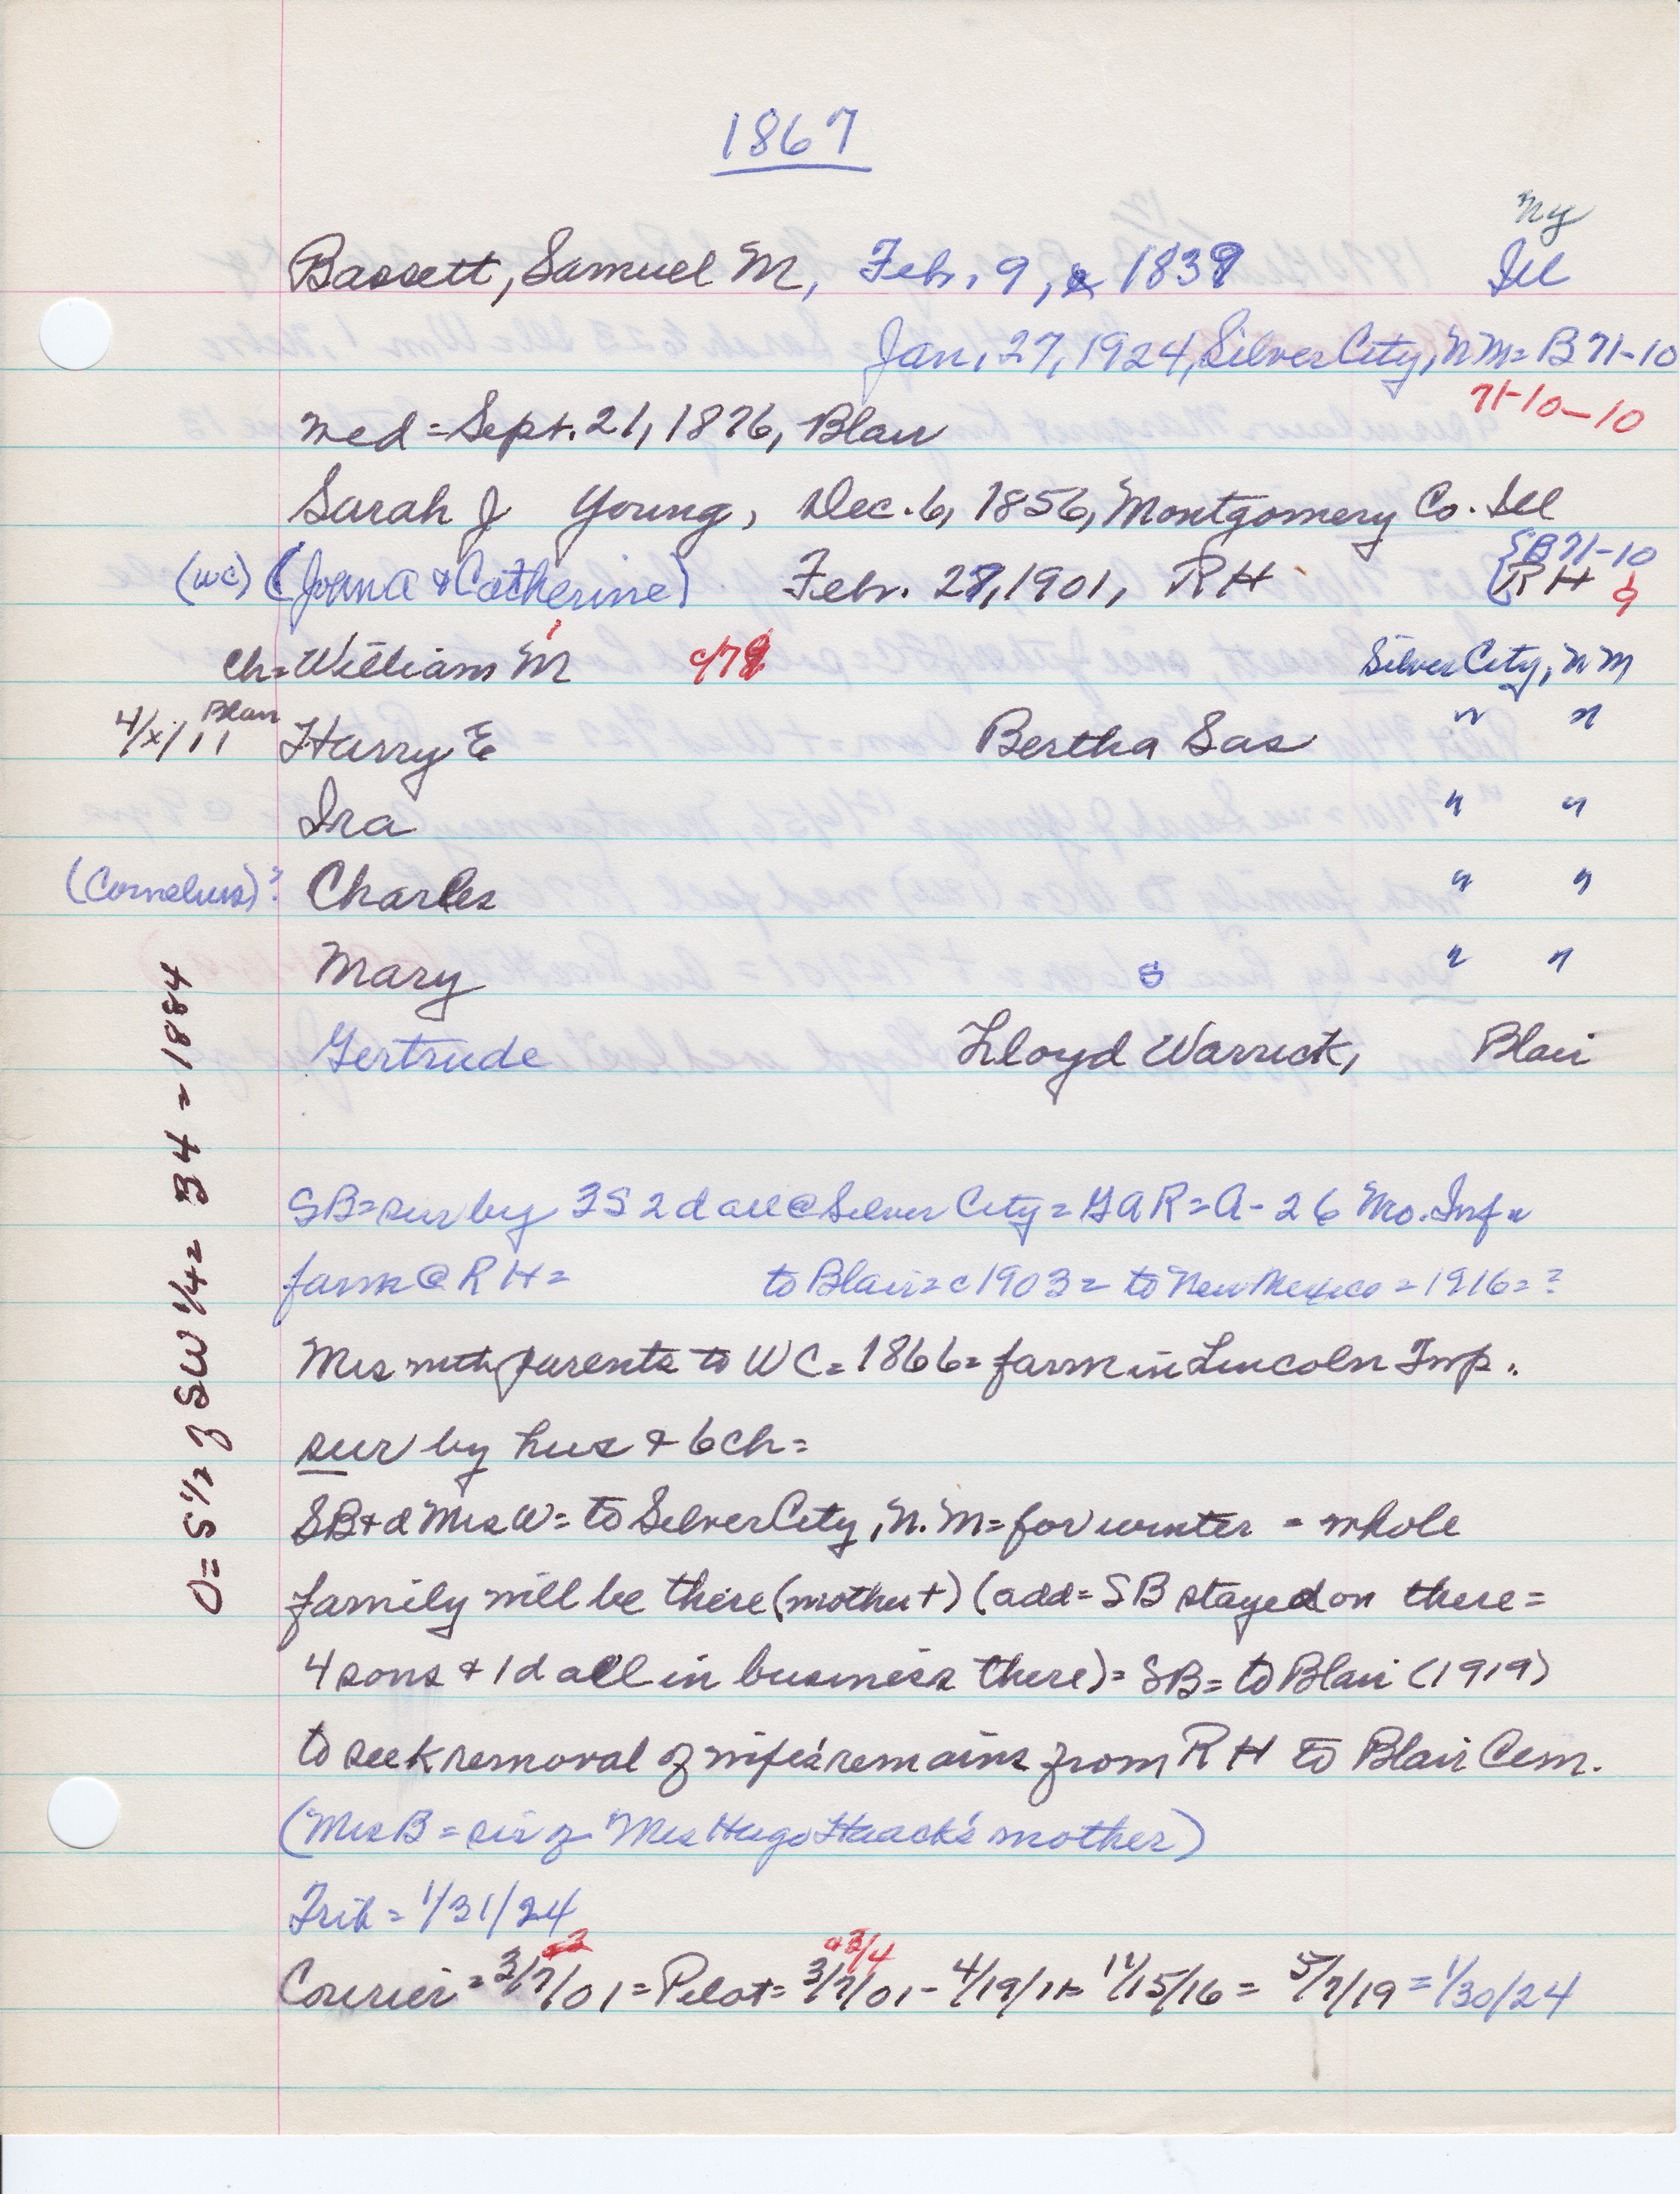 1867
NY
Bassett, Samuel M, Feb. 9, 1839 Ill
Jan. 27, 1924, Silver City, N M = B 71-10
71-10-10
med = Sept. 21, 1876, Blair
Sarah J Young, Dec. 6, 1856, Montgomery Co. Ill
B 71-10
(WC) (John A & Catherine) Febr. 27, 1901, RH RH
ch = William M c/78 Silver City, N M
4/x/11 Blair Harry E Bertha Sas " "
Ira " "
(Cornelius)? Charles " "
Mary S " "
Gertrude Lloyd Warrick, Blair
O = S 1/2 of SW 1/4 = 34 = 1884
SB = sur by 3 S 2 d all @ Silver City = G A R = A - 26 Mo. Inf =
farm @ R H = to Blair = c 1903 = to New Mexico = 1916 = ?
Mrs with parents to W C = 1866 = farm in Lincoln Twp.
sur by hus & 6 ch =
SB + d Mrs W = to Silver City, N. M = for winter = whole
family will be there (mother +) (add = SB stayed on there =
4 sons & 1 d all in business there) = SB = to Blair (1919)
to seek removal of wife's remains from R H to Blair Cem.
(Mrs B = sis of Mrs Hugo Haack's mother)
Trib = 1/31/24
Courier = 3/7/01 = Pilot = 3/7/01 - 4/19/11 = 11/15/16 = 5/7/19 = 1/30/24